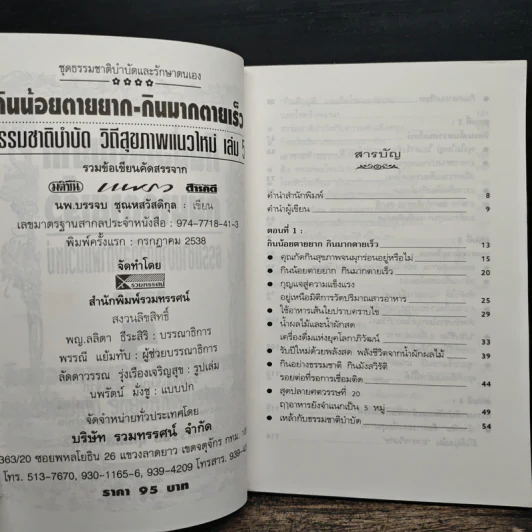 ชุดธรรมชาติบำบัดและรักษาตนเอง
กินน้อยตายยาก-กินมากตายเร็ว
ธรรมชาติบำบัด วิถีสุขภาพแนวใหม่ เล่ม 5
รวมข้อเขียนคัดสรรจาก
มติชน แพรว สีสคดี
นพ.บรรจบ ชุณหสวัสดิกุล : เขียน
เลขมาตรฐานสากลประจำหนังสือ : 974-7718-41-3
พิมพ์ครั้งแรก : กรกฎาคม 2538
จัดทำโดย
รวมทรรศน์
สำนักพิมพ์รวมทรรศน์
สงวนลิขสิทธิ์
พญ.ลลิตา ธีระสิริ : บรรณาธิการ
พรรณี แย้มทับ : ผู้ช่วยบรรณาธิการ
ลัดดาวรรณ รุ่งเรืองเจริญสุข : รูปเล่ม
นพรัตน์ มั่งชู : แบบปก
จัดจำหน่ายทั่วประเทศโดย
บริษัท รวมทรรศน์ จำกัด
363/20 ซอยพหลโยธิน 26 แขวงลาดยาว เขตจตุจักร กทม.
โทร. 513-7670, 930-1165-6, 939-4209 โทรสาร. 939-4
ราคา 95 บาท
สารบัญ
คำนำสำนักพิมพ์ 8
คำนำผู้เขียน 9
ตอนที่ 1 :
กินน้อยตายยาก กินมากตายเร็ว 13
● คุณกัดกินสุขภาพจนมุกร่อนอยู่หรือไม่ 15
● กินน้อยตายยาก กินมากตายเร็ว 20
● กุญแจสู่ความแข็งแรง
อยู่เหนือมิติการวัดปริมาณสารอาหาร 25
● ใช้อาหารเส้นใยปราบคราบไข 29
● น้ำผลไม้และน้ำผักสด
เครื่องดื่มแห่งยุคโลกาภิวัฒน์ 33
● รับปีใหม่ด้วยพลังสด พลังชีวิตจากน้ำผักผลไม้ 39
● กินอย่างธรรมชาติ กินมังสวิรัติ
รอยต่อที่รอการเชื่อมติด 44
● สุดปลายศตวรรษที่ 20
ฤๅอาหารยังจำแนกเป็น 5 หมู่ 49
● เหล้ากับธรรมชาติบำบัด 54